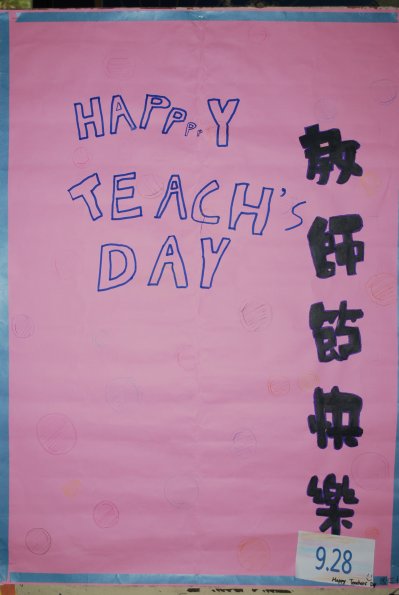 HAPPPPPY
TEACH's
DAY
教師節快樂
9.28
Happy Teachers' Day